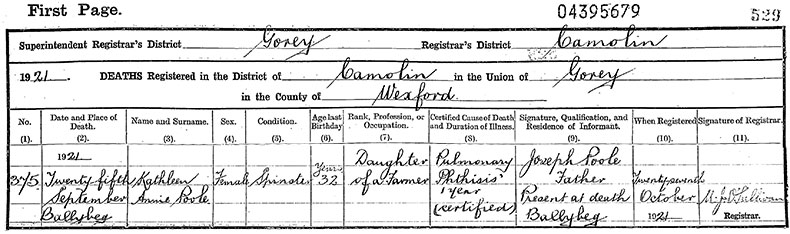 First Page. 04395679 529
Superintendent Registrar's District Gorey Registrar's District Camolin
1921. DEATHS Registered in the District of Camolin in the Union of Gorey
in the County of Wexford.
No. Date and Place of Death. Name and Surname. Sex. Condition. Age last Birthday Rank, Profession, or Occupation. Certified Cause of Death and Duration of Illness. Signature, Qualification, and Residence of Informant. When Registered Signature of Registrar.
(1). (2). (3). (4). (5). (6). (7). (8). (9). (10). (11).
375
1921
Twenty fifth
September
Ballybeg
Kathleen
Annie Poole
Female
Spinster
Years
32
Daughter
of a Farmer
Pulmonary
Phthisis
1 year
(certified)
Joseph Poole
Father
Present at death
Ballybeg
October
1921
Registrar.